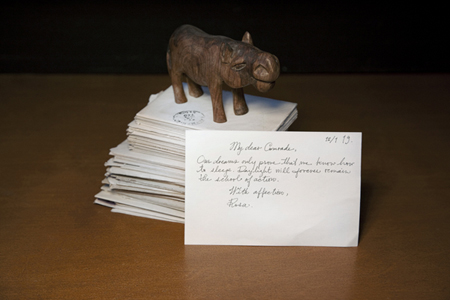 My dear Comrade,
Our dreams only prove that we know how
to sleep. Daylight will forever remain
the school of action.
With affection,
Rosa.